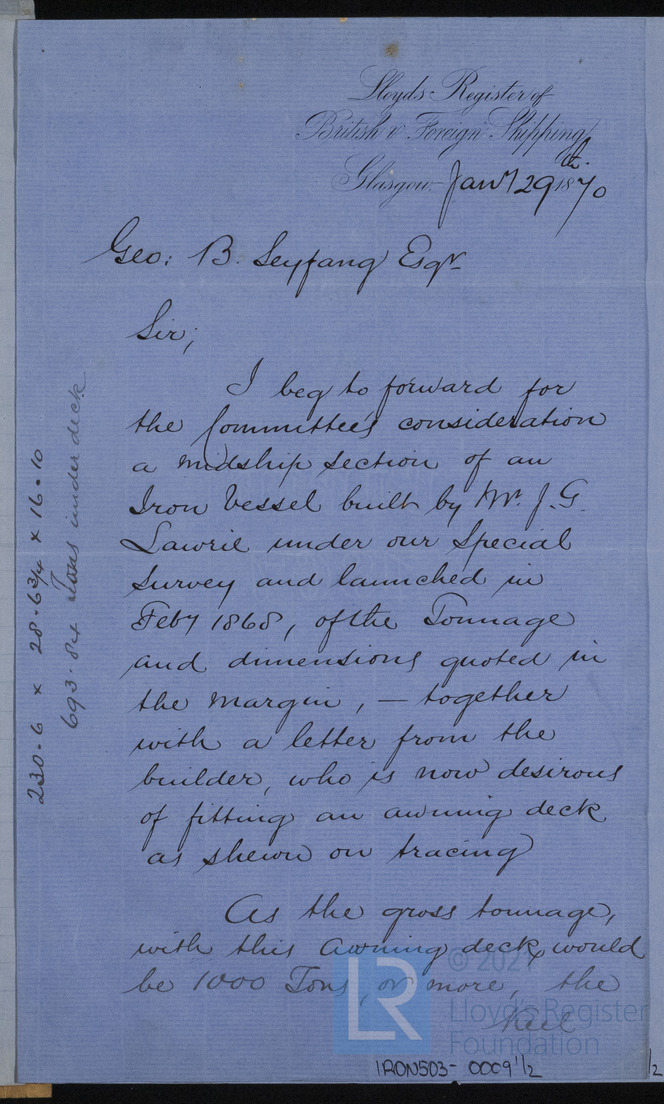 Lloyds Register of
British & Foreign Shipping,
Glasgow. Jany 29th 1870
Geo: B. Seyfang Esqr
Sir,
I beg to forward for
the Committee's consideration
a midship section of an
Iron Vessel built by Mr. J. G.
Lawrie under our Special
Survey and launched in
Feby 1868, of the Tonnage
and dimensions quoted in
the margin, — together
with a letter from the
builder, who is now desirous
of fitting an awning deck
as shewn on tracing
As the gross tonnage,
with this awning deck, would
be 1000 Tons, or more, the
Keel
230.6 x 28.6 3/4 x 16.10
693.84 Tons under deck
LR
© 2021
Lloyd's Register
Foundation
IRON503-0009 1/2